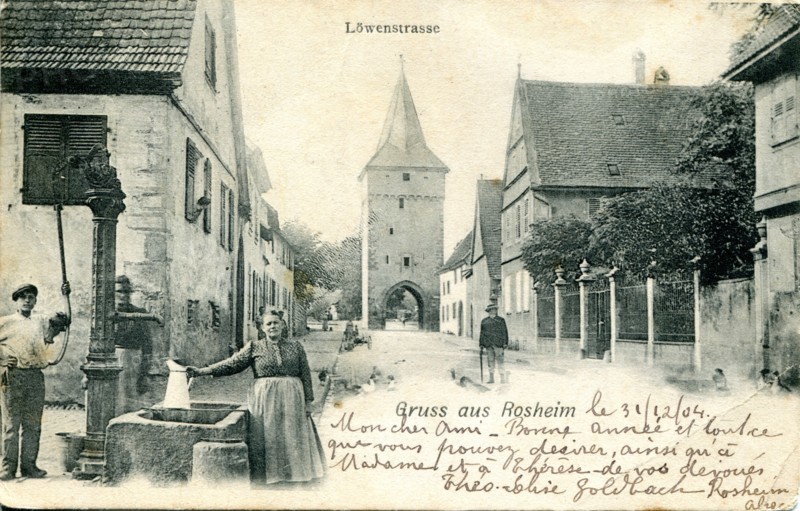 Löwenstrasse
Gruss aus Rosheim le 31/12/04.
Mon cher Ami - Bonne année et tout ce
que vous pouvez désirer, ainsi qu'à
Madame et à Thérèse - de vos dévoués
Théo. Elise Goldbach Rosheim